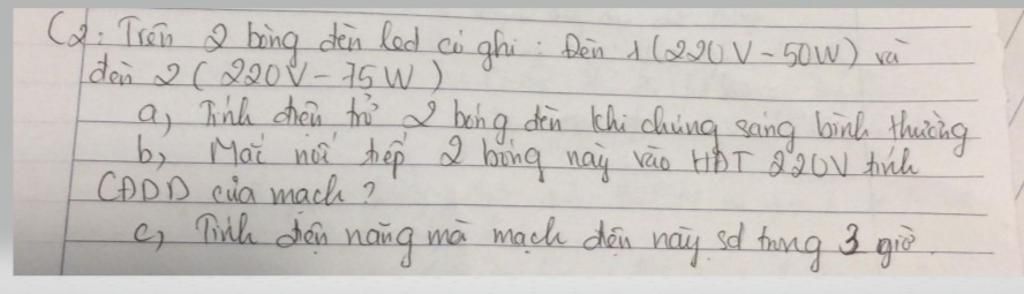 C2: Trên 2 bóng đèn led có ghi: Đèn 1 (220V-50W) và
đèn 2 (220V-75W)
a, Tính điện trở 2 bóng đèn khi chúng sáng bình thường
b, Mắc nối tiếp 2 bóng này vào HĐT 220V tính
CĐDĐ của mạch?
c, Tính điện năng mà mạch điện này sd trong 3 giờ.